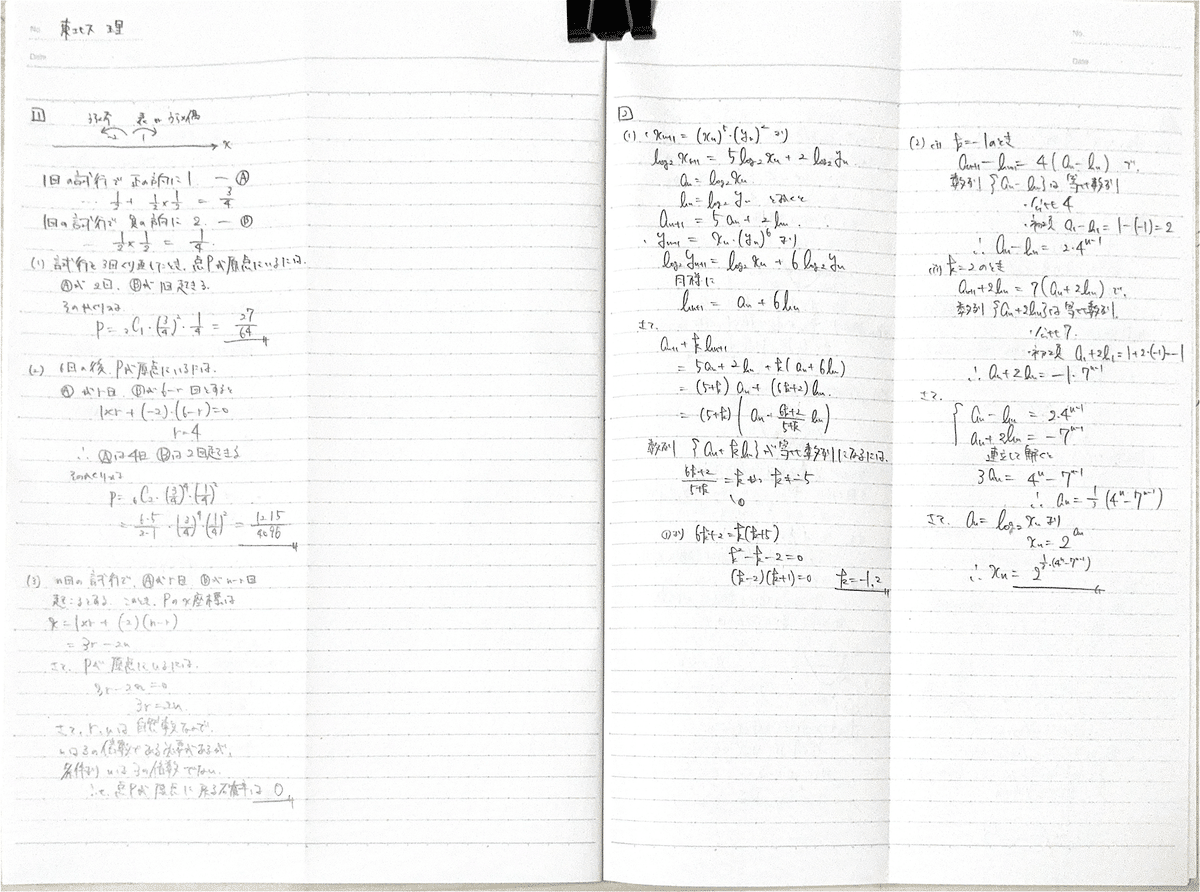 No.
Date
1
x
1回の試行で正の向に1 ― Ⓐ
… 1/2 + 1/2 × 1/2 = 3/4
1回の試行で負の向に2 ― Ⓑ
… 1/2 × 1/2 = 1/4
(1) 試行を3回くり返したとき、点Pが原点にいるには、
Ⓐが2回、Ⓑが1回起きる
P = ₃C₁・(3/4)²・1/4 = 27/64
(2) 6回の後、Pが原点にいるには、
Ⓐがr回、Ⓑが6-r回とすると
1×r + (-2)・(6-r) = 0
r = 4
∴ Ⓐは4回 Ⓑは2回起きる
P = ₆C₂・(3/4)⁴・(1/4)²
= 6・5/2・1・(3/4)⁴(1/4)² = 1215/4096
(3) n回の試行で、Ⓐがr回 Ⓑがn-r回
起こるとする このとき、Pのx座標は
x = 1×r + (-2)(n-r)
= 3r - 2n
さて、Pが原点にいるには、
3r - 2n = 0
3r = 2n
さて、r, nは自然数なので、
nは3の倍数である必要があるが、
条件よりnは3の倍数でない
点Pが原点に戻る確率は 0
No.
Date
2
(1) ・xₙ₊₁ = (xₙ)⁵・(yₙ)² より
log₂xₙ₊₁ = 5log₂xₙ + 2log₂yₙ
aₙ = log₂xₙ
bₙ = log₂yₙ
aₙ₊₁ = 5aₙ + 2bₙ
・yₙ₊₁ = xₙ・(yₙ)⁶ より
log₂yₙ₊₁ = log₂xₙ + 6log₂yₙ
同様に
bₙ₊₁ = aₙ + 6bₙ
さて、
aₙ₊₁ + kbₙ₊₁
= 5aₙ + 2bₙ + k(aₙ + 6bₙ)
= (5+k)aₙ + (6k+2)bₙ
= (5+k)(aₙ + (6k+2)/(5+k) bₙ)
数列{aₙ + kbₙ}が等比数列になるには、
(6k+2)/(5+k) = k かつ k ≠ -5
①より 6k+2 = k(k+5)
k² - k - 2 = 0
(k-2)(k+1) = 0 k = -1, 2
(2) (i) k = -1のとき
aₙ₊₁ - bₙ₊₁ = 4(aₙ - bₙ) で、
数列{aₙ - bₙ}は等比数列
・公比4
・初項 a₁ - b₁ = 1 - (-1) = 2
∴ aₙ - bₙ = 2・4ⁿ⁻¹
(ii) k = 2のとき
aₙ₊₁ + 2bₙ₊₁ = 7(aₙ + 2bₙ) で、
数列{aₙ + 2bₙ}は等比数列
・公比7
・初項 a₁ + 2b₁ = 1 + 2・(-1) = -1
∴ aₙ + 2bₙ = -1・7ⁿ⁻¹
さて、
aₙ - bₙ = 2・4ⁿ⁻¹
aₙ + 2bₙ = -7ⁿ⁻¹
連立して解くと
3aₙ = 4ⁿ - 7ⁿ⁻¹
∴ aₙ = 1/3(4ⁿ - 7ⁿ⁻¹)
さて、aₙ = log₂xₙ より
xₙ = 2^aₙ
∴ xₙ = 2^{1/3・(4ⁿ-7ⁿ⁻¹)}